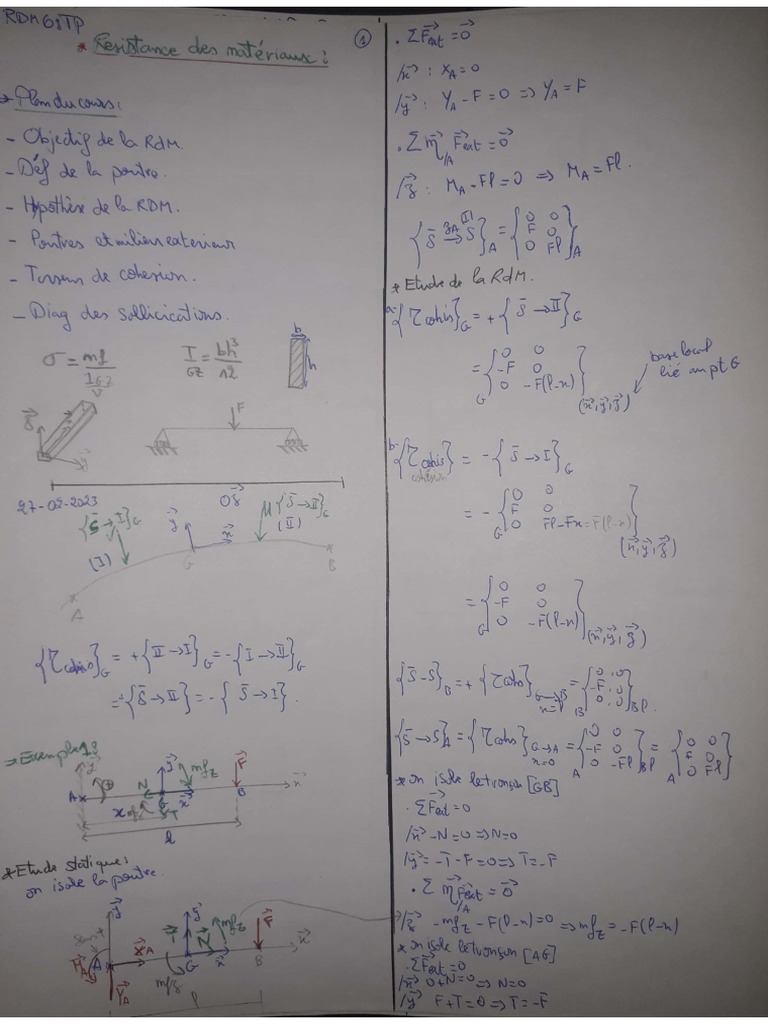 RDM 6
TP
* Resistance des matériaux :
①
* Plan du cours :
- Objectif de la RdM.
- Déf de la poutre.
- Hypothèse de la RDM.
- Poutres et milieu exterieur
- Torseur de cohesion.
- Diag des sollicications.
σ = mf / (I_GZ / v)
I_GZ = bh³ / 12
b
h
F
27-02-2023
{S̄→I}_G
(I)
y⃗
x⃗
G
{S̄→II}_G
(II)
A
B
{τ cohis}_G = +{II→I}_G = -{I→II}_G
= {S̄→II} = -{S̄→I}.
→ Exemple 1 :
y⃗
A
N
G
T
mfz
x⃗
F⃗
B
l
* Etude statique :
on isole la poutre.
y⃗
A
X⃗A
Y⃗A
T⃗
N⃗
G
mfz
x⃗
F⃗
B
l
. ΣF⃗ext = 0⃗
/x⃗ : XA = 0
/y⃗ : YA - F = 0 => YA = F
. Σ m⃗/A F⃗ext = 0⃗
/z⃗ : MA - Fl = 0 => MA = Fl.
{S̄→S}_A = {0 0 / F 0 / 0 Fl}_A
* Etude de la RdM.
a- {τ cohis}_G = +{S̄→II}_G
= {0 0 / -F 0 / 0 -F(l-x)}_G (x⃗,y⃗,z⃗)
base local
lié au pt G
b- {τ cohis} = -{S̄→I}_G
cohésion
= -{0 0 / F 0 / 0 Fl-Fx = F(l-x)}_G (x⃗,y⃗,z⃗)
= {0 0 / -F 0 / 0 -F(l-x)}_G (x⃗,y⃗,z⃗)
{S̄→S}_B = +{τ cohis}_G→B x=l = {0 0 / -F 0 / 0 0}_B
{S̄→S}_A = {τ cohis}_G→A x=0 = {0 0 / -F 0 / 0 -Fl}_A = {0 0 / F 0 / 0 Fl}_A
* on isole le tronçon [GB]
. ΣF⃗ext = 0
/x⃗ -N = 0 => N = 0
/y⃗ = -T - F = 0 => T = -F
. Σ m⃗/A F⃗ext = 0⃗
/z⃗ -mfz - F(l-x) = 0 => mfz = -F(l-x)
* on isole le tronçon [AG]
. ΣF⃗ext = 0
/x⃗ 0+N=0 => N=0
/y⃗ F+T=0 => T=-F